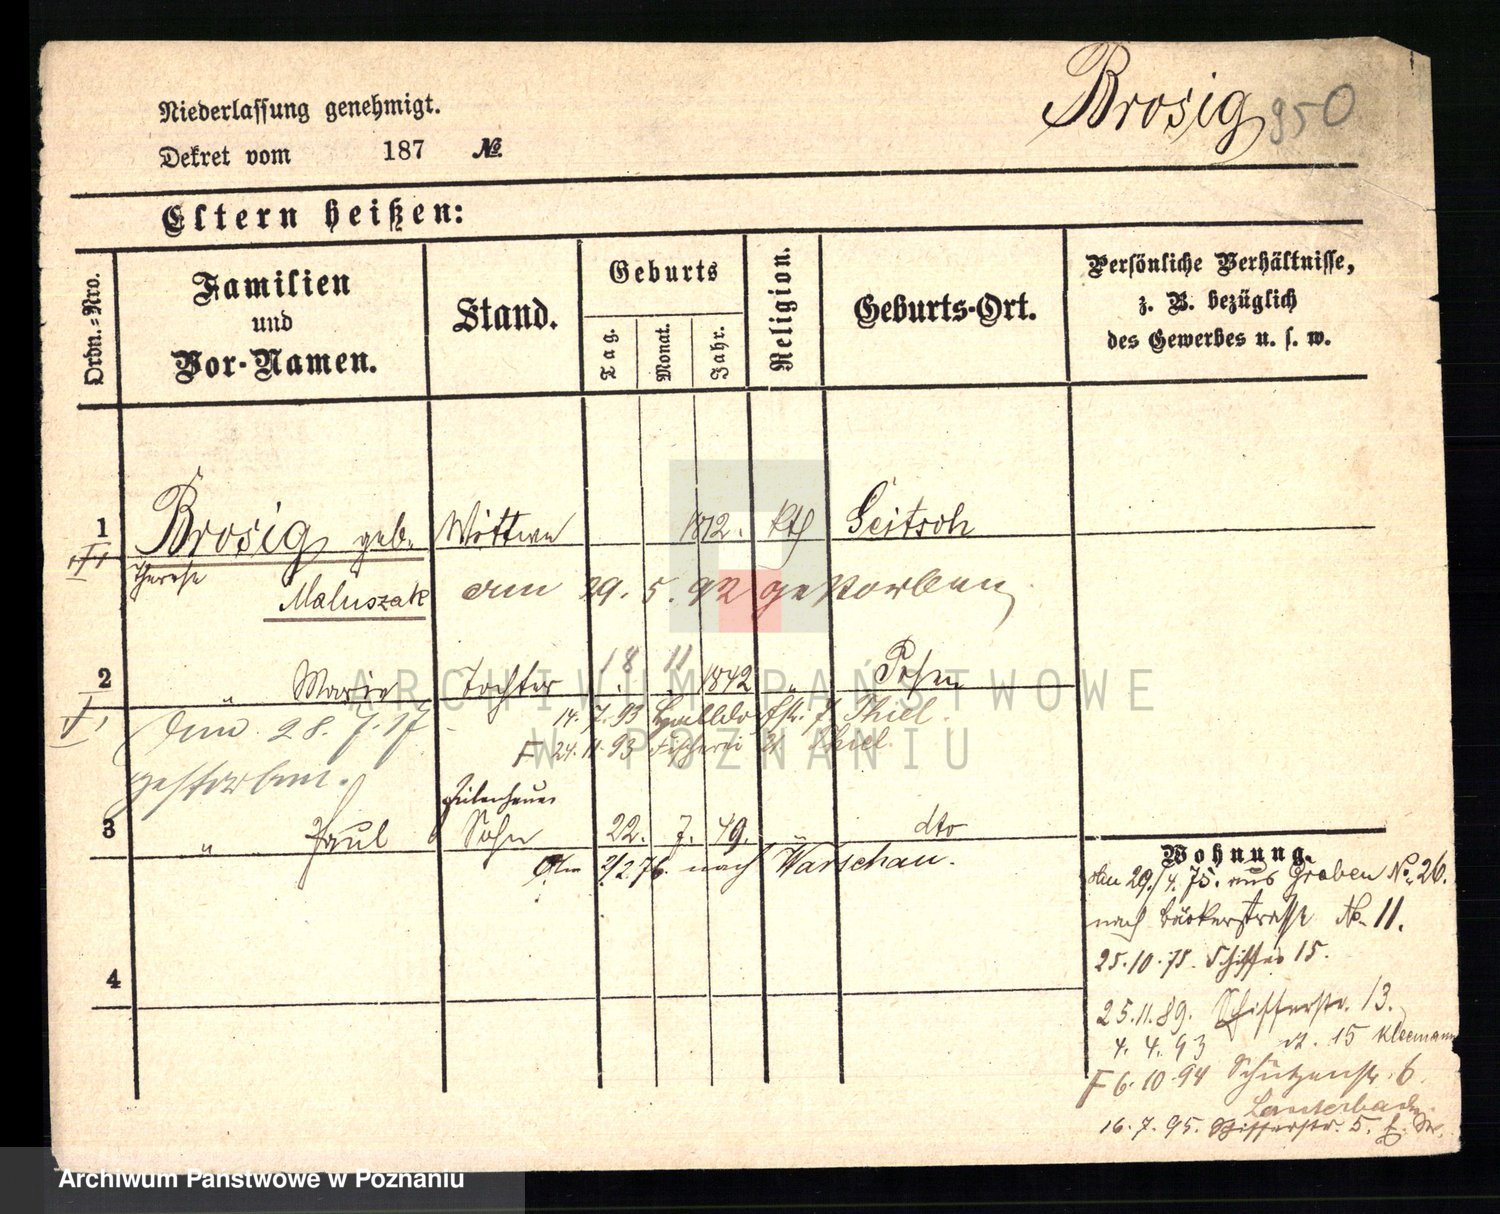 Brosig 950
Niederlassung genehmigt.
Dekret vom 187 No.
Eltern heißen:
Ordn.-Nro.
Familien und Vor-Namen.
Stand.
Geburts
Tag. Monat. Jahr.
Religion.
Geburts-Ort.
Persönliche Verhältnisse, z. B. bezüglich des Gewerbes u. s. w.
1 Brosig geb. Wittwe 1812. kth
Therese Maluszak am 29. 5. 92 gestorben
2 " Marie Tochter 18. 11. 1842 " Posen
14. 7. 93 Thiel.
Am 28. 7. 17 F 24. 11. 93 Fischerei 21 Thiel.
gestorben.
3 " Paul Sohn 22. 7. 49. " dto
Am 2/2 76. nach Warschau.
Wohnung.
Am 29./4. 75. aus Graben No. 26.
nach Bäckerstrasse No. 11.
25. 10. 75. Schiffer 15.
4
25. 11. 89. Schifferstr. 13.
4. 4. 93 15 Kleemann
F 6. 10. 94 Schützenstr. 6.
16. 7. 95. Schifferstr. 5.
ARCHIWUM PAŃSTWOWE
W POZNANIU
Archiwum Państwowe w Poznaniu